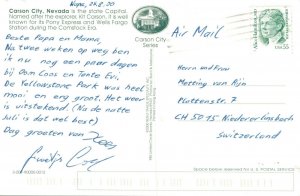 Carson City, Nevada is the state Capitol.
Named after the explorer, Kit Carson, it is well
known for its Pony Express and Wells Fargo
Station during the Comstock Era.
Beste Papa en Mama,
Na twee weken op weg ben
ik nu nog een paar dagen
bij Oom Loos en Tante Evi.
De Yellowstone Park was heel
mooi en erg groot. Het weer
is uitstekend (Na de natte
Juli is dat wel best)
Dag groeten van
Carson City
Series
Air Mail
USA 55
Herrn und Frau
Metting van Rijn
Plattenstr. 7
CH 5015 Niedererlinsbach
Switzerland